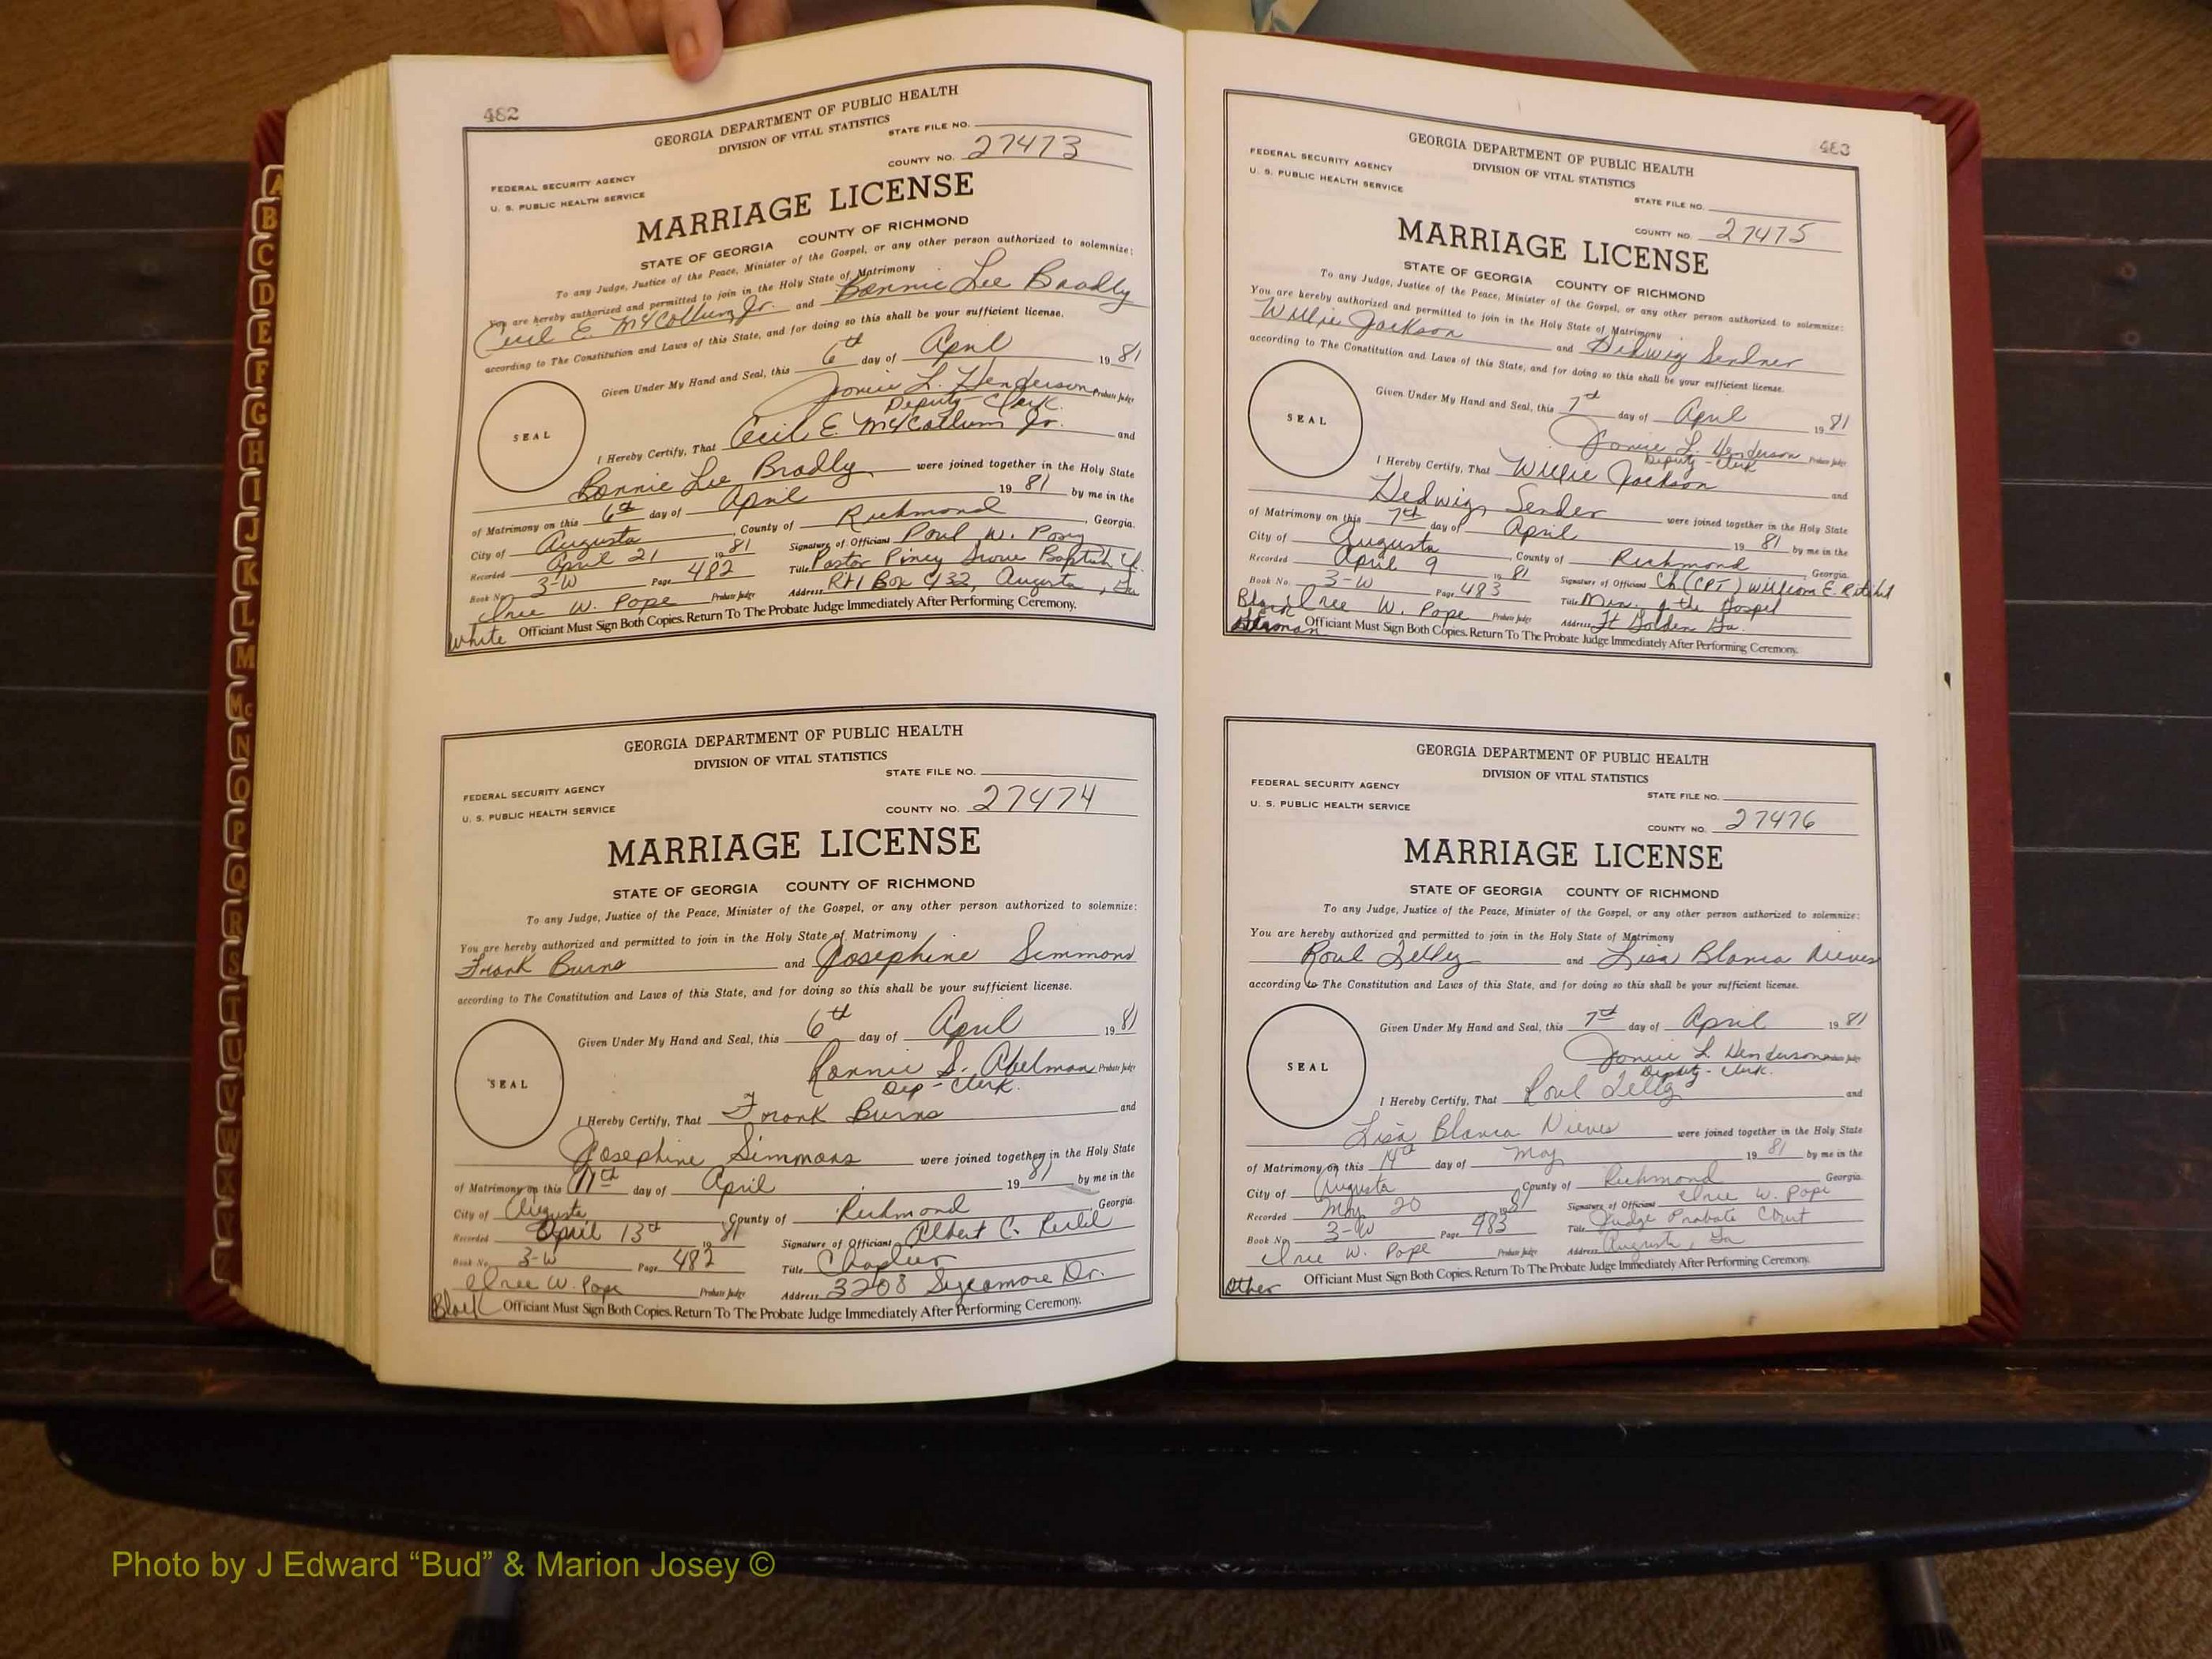 482
GEORGIA DEPARTMENT OF PUBLIC HEALTH
DIVISION OF VITAL STATISTICS
STATE FILE NO.
COUNTY NO. 27473
FEDERAL SECURITY AGENCY
U. S. PUBLIC HEALTH SERVICE
MARRIAGE LICENSE
STATE OF GEORGIA COUNTY OF RICHMOND
To any Judge, Justice of the Peace, Minister of the Gospel, or any other person authorized to solemnize:
You are hereby authorized and permitted to join in the Holy State of Matrimony
Cecil E. McCollum Jr. and Bonnie Lee Bradly
according to The Constitution and Laws of this State, and for doing so this shall be your sufficient license.
Given Under My Hand and Seal, this 6th day of April 19 81
SEAL
L. Henderson Probate Judge
Deputy-Clerk
I Hereby Certify, That Cecil E. McCollum Jr. and
Bonnie Lee Bradly were joined together in the Holy State
of Matrimony on this 6th day of April 19 81 by me in the
City of Augusta County of Richmond, Georgia.
Recorded April 21 19 81 Signature of Officiant Paul W.
Book No. 3-W Page 482 Title Pastor Piney Grove Baptist Ch.
W. Pope Probate Judge Address Rt 1 Box 432, Augusta, Ga
White Officiant Must Sign Both Copies. Return To The Probate Judge Immediately After Performing Ceremony.
GEORGIA DEPARTMENT OF PUBLIC HEALTH
DIVISION OF VITAL STATISTICS
STATE FILE NO.
FEDERAL SECURITY AGENCY
COUNTY NO. 27474
U. S. PUBLIC HEALTH SERVICE
MARRIAGE LICENSE
STATE OF GEORGIA COUNTY OF RICHMOND
To any Judge, Justice of the Peace, Minister of the Gospel, or any other person authorized to solemnize:
You are hereby authorized and permitted to join in the Holy State of Matrimony
Frank Burns and Josephine Simmons
according to The Constitution and Laws of this State, and for doing so this shall be your sufficient license.
Given Under My Hand and Seal, this 6th day of April 19 81
SEAL
Ronnie S. Abelman Probate Judge
Dep-Clerk.
I Hereby Certify, That Frank Burns and
Josephine Simmons were joined together in the Holy State
of Matrimony on this 11th day of April 19 81 by me in the
City of Augusta County of Richmond Georgia.
Recorded April 13th 19 81 Signature of Officiant Albert C.
Book No. 3-W Page 482 Title
W. Pope Probate Judge Address 3208 Sycamore Dr.
Black Officiant Must Sign Both Copies. Return To The Probate Judge Immediately After Performing Ceremony.
483
GEORGIA DEPARTMENT OF PUBLIC HEALTH
DIVISION OF VITAL STATISTICS
FEDERAL SECURITY AGENCY
U. S. PUBLIC HEALTH SERVICE
STATE FILE NO.
COUNTY NO. 27475
MARRIAGE LICENSE
STATE OF GEORGIA COUNTY OF RICHMOND
To any Judge, Justice of the Peace, Minister of the Gospel, or any other person authorized to solemnize:
You are hereby authorized and permitted to join in the Holy State of Matrimony
Willie Jackson and Hedwig
according to The Constitution and Laws of this State, and for doing so this shall be your sufficient license.
Given Under My Hand and Seal, this 7th day of April 19 81
SEAL
L. Henderson Probate Judge
Deputy-Clerk
I Hereby Certify, That Willie Jackson and
Hedwig Sender were joined together in the Holy State
of Matrimony on this 7th day of April 19 81 by me in the
City of Augusta, County of Richmond, Georgia
Recorded April 9 19 81 Signature of Officiant Ch (CPT) William E.
Book No. 3-W Page 483 Title Min. of the Gospel
Black W. Pope Probate Judge Address Ft Ga.
German Officiant Must Sign Both Copies. Return To The Probate Judge Immediately After Performing Ceremony.
GEORGIA DEPARTMENT OF PUBLIC HEALTH
DIVISION OF VITAL STATISTICS
FEDERAL SECURITY AGENCY
STATE FILE NO.
U. S. PUBLIC HEALTH SERVICE
COUNTY NO. 27476
MARRIAGE LICENSE
STATE OF GEORGIA COUNTY OF RICHMOND
To any Judge, Justice of the Peace, Minister of the Gospel, or any other person authorized to solemnize:
You are hereby authorized and permitted to join in the Holy State of Matrimony
and Lisa Blanca Nieves
according to The Constitution and Laws of this State, and for doing so this shall be your sufficient license.
Given Under My Hand and Seal, this 7th day of April 19 81
SEAL
L. Henderson Probate Judge
Deputy-Clerk.
I Hereby Certify, That and
Lisa Blanca Nieves were joined together in the Holy State
of Matrimony on this 14th day of May 19 81 by me in the
City of Augusta County of Richmond Georgia.
Recorded May 20 19 81 Signature of Officiant W. Pope
Book No. 3-W Page 483 Title Judge Probate Court
W. Pope Probate Judge Address Augusta, Ga
Other Officiant Must Sign Both Copies. Return To The Probate Judge Immediately After Performing Ceremony.
A
B
C
D
E
F
G
H
I
J
K
L
M
Mc
N
O
P
Q
R
S
T
U
V
W
X
Y
Z
Photo by J Edward “Bud” & Marion Josey ©